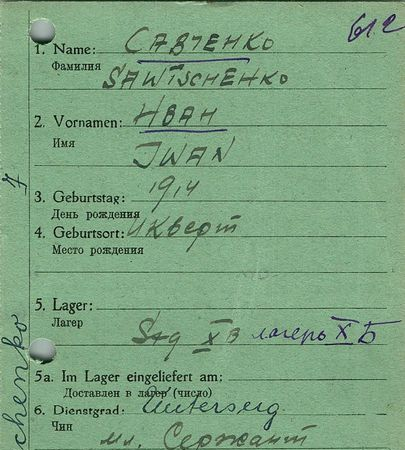 612
1. Name: САВЧЕНКО
Фамилия
SAWTSCHENKO
2. Vornamen: ИВАН
Имя
IWAN
3. Geburtstag: 1914
День рождения
4. Geburtsort:
Место рождения
5. Lager:
Лагерь
Stg XB лагерь XБ
5a. Im Lager eingeliefert am:
Доставлен в лагерь (число)
6. Dienstgrad: Unterserg
Чин
мл. Сержант
chenko J